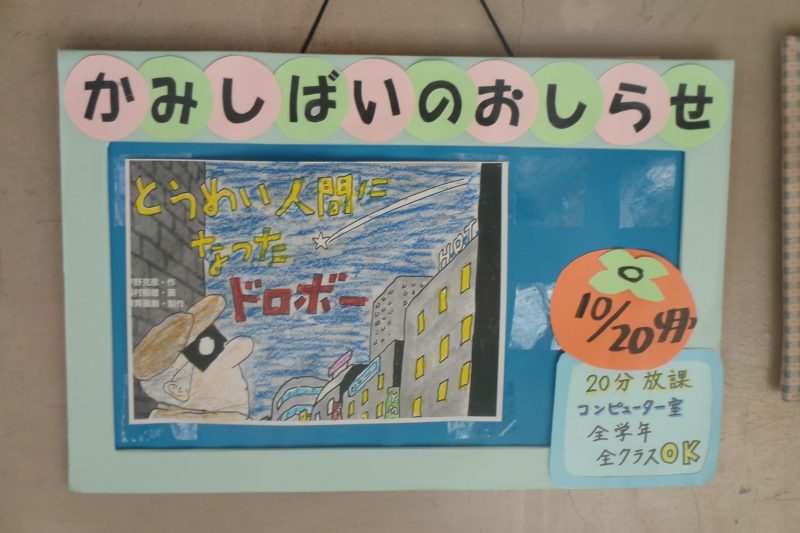 かみしばいのおしらせ
とうめい人間に
なった
ドロボー
野克彦・作
村郁雄・画
育画劇・制作
HOT
10/20(月)
20分放課
コンピューター室
全学年
全クラスOK